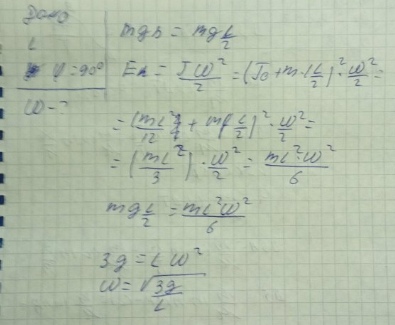 Дано
L
φ=90°
ω-?
mgh = mg L/2
Eк = Jω²/2 = (J₀+m·(L/2)²)·ω²/2 =
= (mL²/12 + m(L/2)²)·ω²/2 =
= (mL²/3)·ω²/2 = mL²ω²/6
mg L/2 = mL²ω²/6
3g = Lω²
ω = √(3g/L)